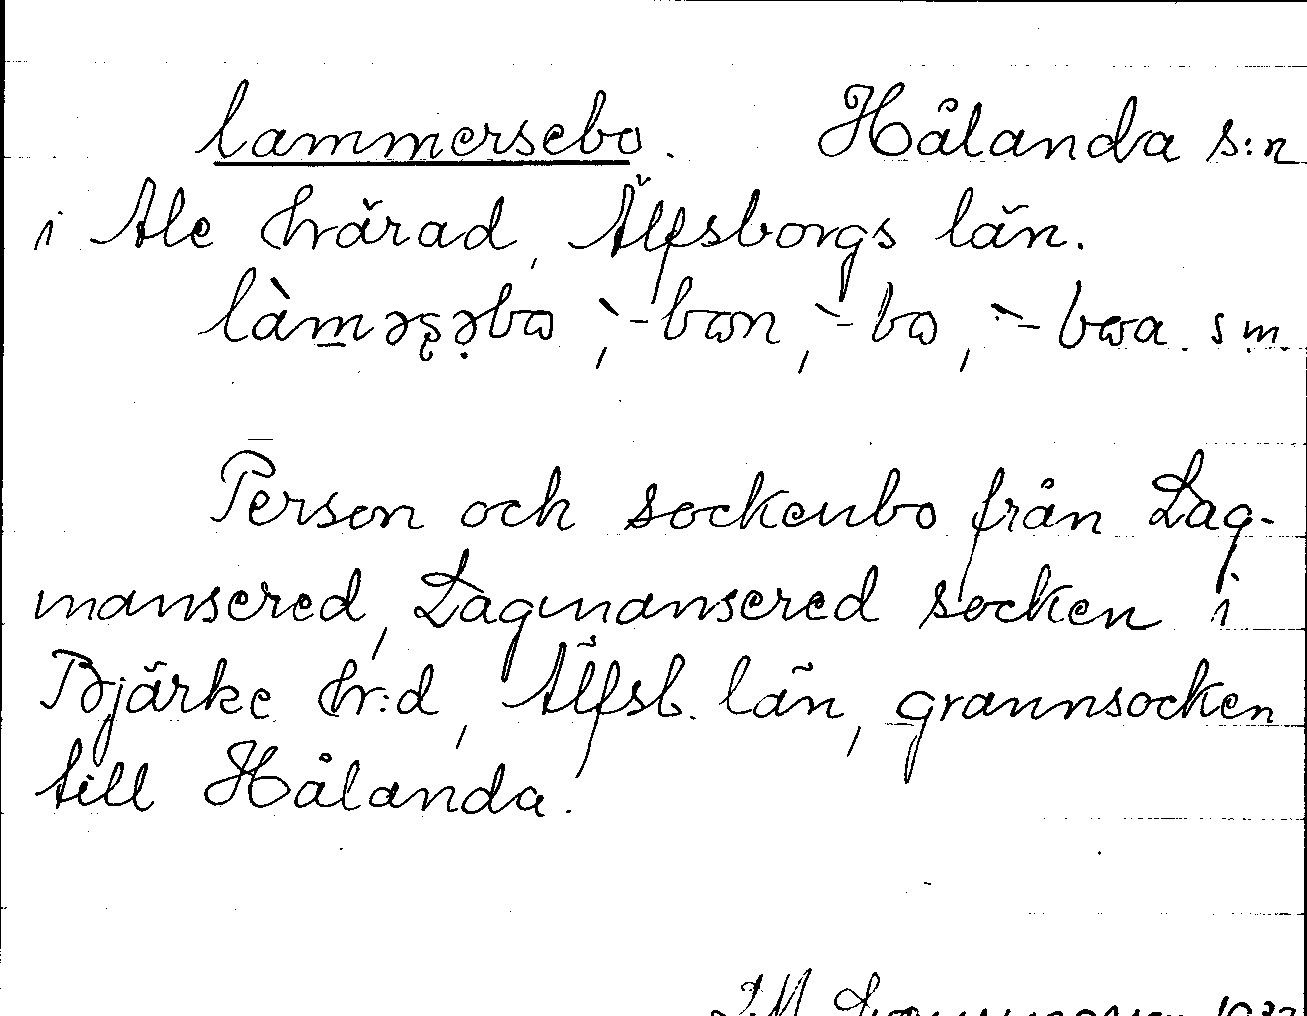 lammersebo. Hålanda s:n
i Ale härad, Älfsborgs län.
làm̲əʂə̣bω, `-bωn, `-bω, `-bωa. s m.
Person och sockenbo från Lag-
mansered, Lagmansered socken i
Bjärke hr:d, Älfsb. län, grannsocken
till Hålanda.